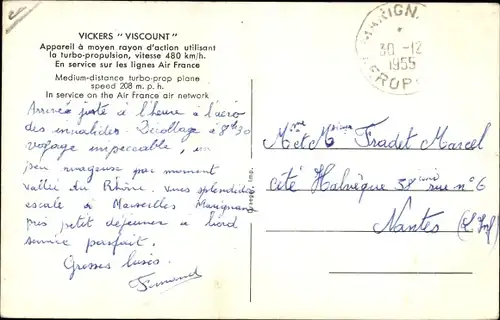 VICKERS "VISCOUNT"
Appareil à moyen rayon d'action utilisant
la turbo-propulsion, vitesse 480 km/h.
En service sur les lignes Air France
Medium-distance turbo-prop plane
speed 208 m. p. h.
In service on the Air France air network
Arrivée juste à l'heure à l'aéro
des invalides. Décollage à 8h30
voyage impeccable, un
peu nuageux par moment
Vallée du Rhône. Vues splendides
escale à Marseilles Marignane
pris petit déjeuner à bord
service parfait.
Grosses bises.
Fernand
MARIGN
30-12
1955
AEROP
Mme et M Fradet Marcel
Cité Halvèque 38 rue n° 6
Nantes (L. Inf)
Imp.